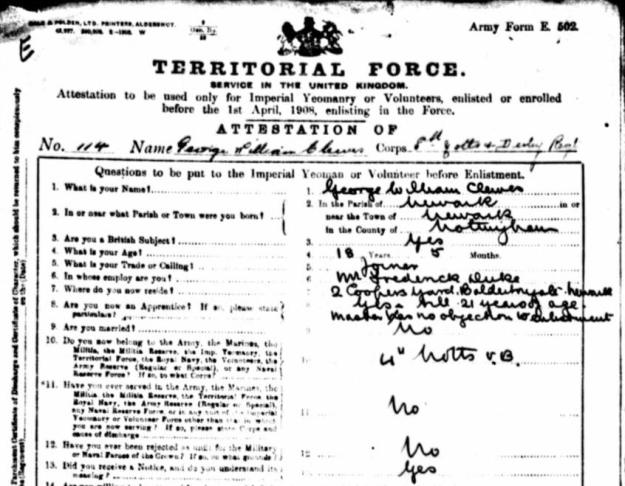 GALE & POLDEN, LTD. PRINTERS, ALDERSHOT.
Army Form E. 502.
E
TERRITORIAL FORCE.
SERVICE IN THE UNITED KINGDOM.
Attestation to be used only for Imperial Yeomanry or Volunteers, enlisted or enrolled
before the 1st April, 1908, enlisting in the Force.
ATTESTATION OF
No. 114 Name George William Clewes Corps 8th Notts & Derby Regt
Questions to be put to the Imperial Yeoman or Volunteer before Enlistment.
1. What is your Name? 1. George William Clewes
2. In or near what Parish or Town were you born? 2. In the Parish of Newark in or
near the Town of Newark
in the County of Nottingham
3. Are you a British Subject? 3. Yes
4. What is your Age? 4. 18 Years 5 Months.
5. What is your Trade or Calling? 5 Joiner
6. In whose employ are you? 6 Mr Frederick Duke
7. Where do you now reside? 2 Coopers Yard Newark
8. Are you now an Apprentice? If so, please state Yes till 21 years of age.
particulars? Master has no objection to enlistment
9. Are you married? No
10. Do you now belong to the Army, the Marines, the
Militia, the Militia Reserve, the Imp. Yeomanry, the
Territorial Force, the Royal Navy, the Volunteers, the
Army Reserve (Regular or Special), or any Naval
Reserve Force? If so, to what Corps? 4th Notts V.B.
*11. Have you ever served in the Army, the Marines, the
Militia, the Militia Reserve, the Territorial Force, the
Royal Navy, the Army Reserve (Regular or Special),
any Naval Reserve Force, or in any unit of the Imperial
Yeomanry or Volunteer Force other than that in which
you are now serving? If so, please state Corps and
cause of discharge 11 No
12. Have you ever been rejected as unfit for the Military
or Naval Forces of the Crown? If so, on what grounds? 12 No
13. Did you receive a Notice, and do you understand its
meaning? 13 Yes